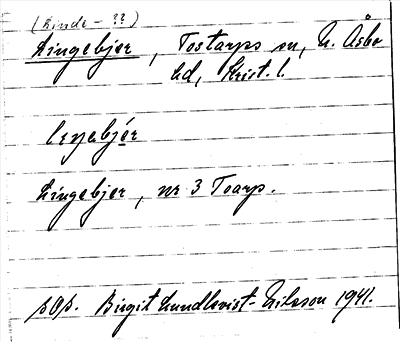 (Linde- ??)
Lingebjer, Tostarps sn, N. Åsbo
hd, Krist. l.
Lingebjer, nr 3 Toarp.
pOp. Birgit Lundkvist-Nilsson 1941.